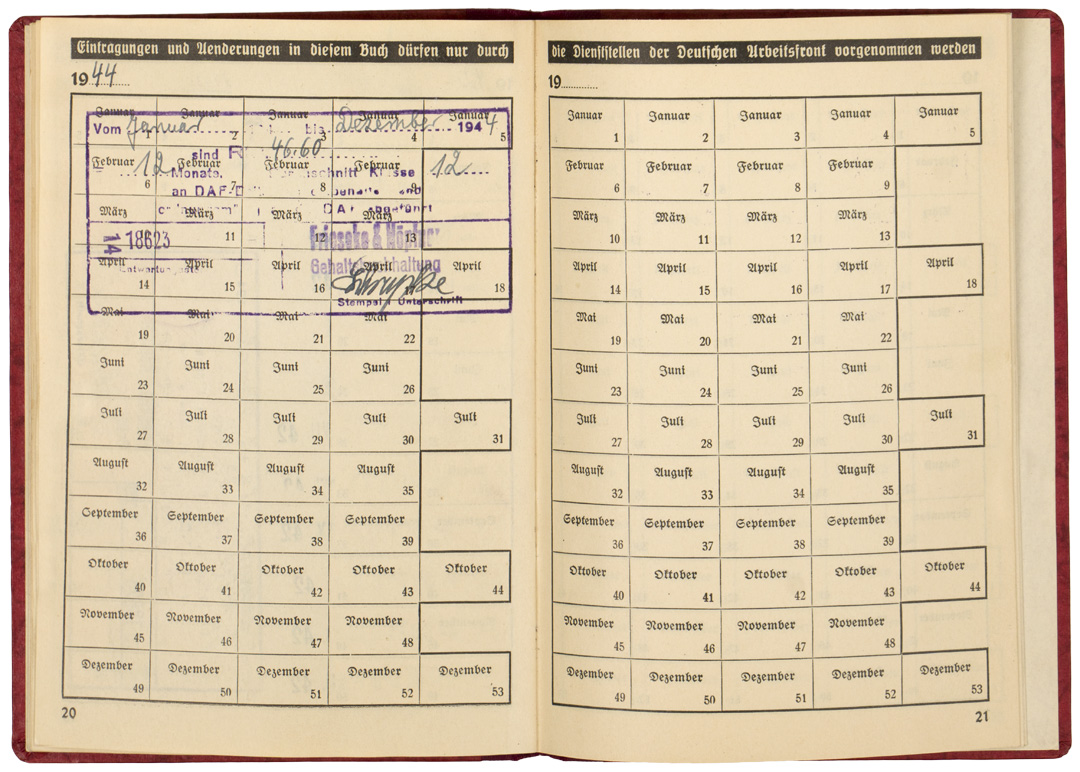 Eintragungen und Aenderungen in diesem Buch dürfen nur durch
1944
Januar Januar Januar Januar Januar
1 2 3 4 5
Vom Januar bis Dezember 1944
sind R 46.60
Februar Februar Februar Februar
6 7 8 9
12 Monats. Klasse 12
an DAF
März März März März
11 12 13
14 18623
Frieseke & Höpfner
Gehaltsbuchhaltung
April April April April April
14 15 16 18
Stempel Unterschrift
Mai Mai Mai Mai
19 20 21 22
Juni Juni Juni Juni
23 24 25 26
Juli Juli Juli Juli Juli
27 28 29 30 31
August August August August
32 33 34 35
September September September September
36 37 38 39
Oktober Oktober Oktober Oktober Oktober
40 41 42 43 44
November November November November
45 46 47 48
Dezember Dezember Dezember Dezember Dezember
49 50 51 52 53
20
die Dienststellen der Deutschen Arbeitsfront vorgenommen werden
19
Januar Januar Januar Januar Januar
1 2 3 4 5
Februar Februar Februar Februar
6 7 8 9
März März März März
10 11 12 13
April April April April April
14 15 16 17 18
Mai Mai Mai Mai
19 20 21 22
Juni Juni Juni Juni
23 24 25 26
Juli Juli Juli Juli Juli
27 28 29 30 31
August August August August
32 33 34 35
September September September September
36 37 38 39
Oktober Oktober Oktober Oktober Oktober
40 41 42 43 44
November November November November
45 46 47 48
Dezember Dezember Dezember Dezember Dezember
49 50 51 52 53
21